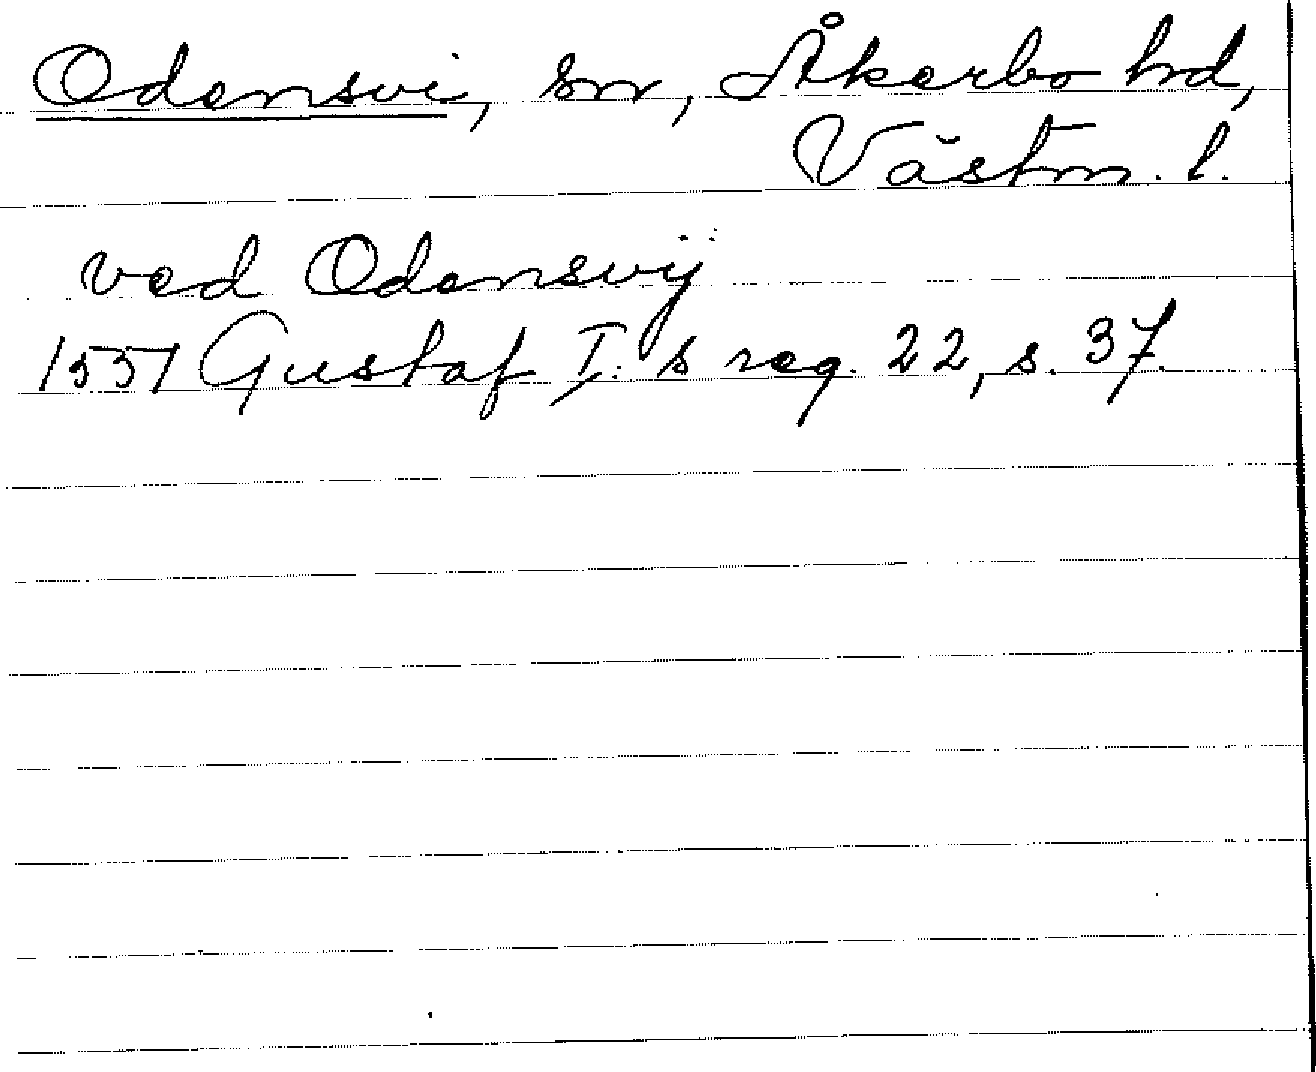 Odensvi, sn, Åkerbo hd,
Västm. l.
ved Odensvÿ
1551 Gustaf I:s reg. 22, s. 37.